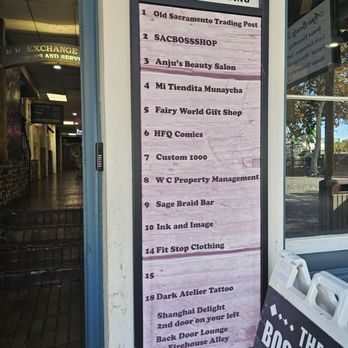 EXCHANGE
1 Old Sacramento Trading Post
2 SACBOSSSHOP
3 Anju's Beauty Salon
4 Mi Tiendita Munaycha
5 Fairy World Gift Shop
6 HFQ Comics
7 Custom 1000
8 W C Property Management
9 Sage Braid Bar
10 Ink and Image
14 Fit Stop Clothing
15
18 Dark Atelier Tattoo
Shanghai Delight
2nd door on your left
Back Door Lounge
Firehouse Alley
THE